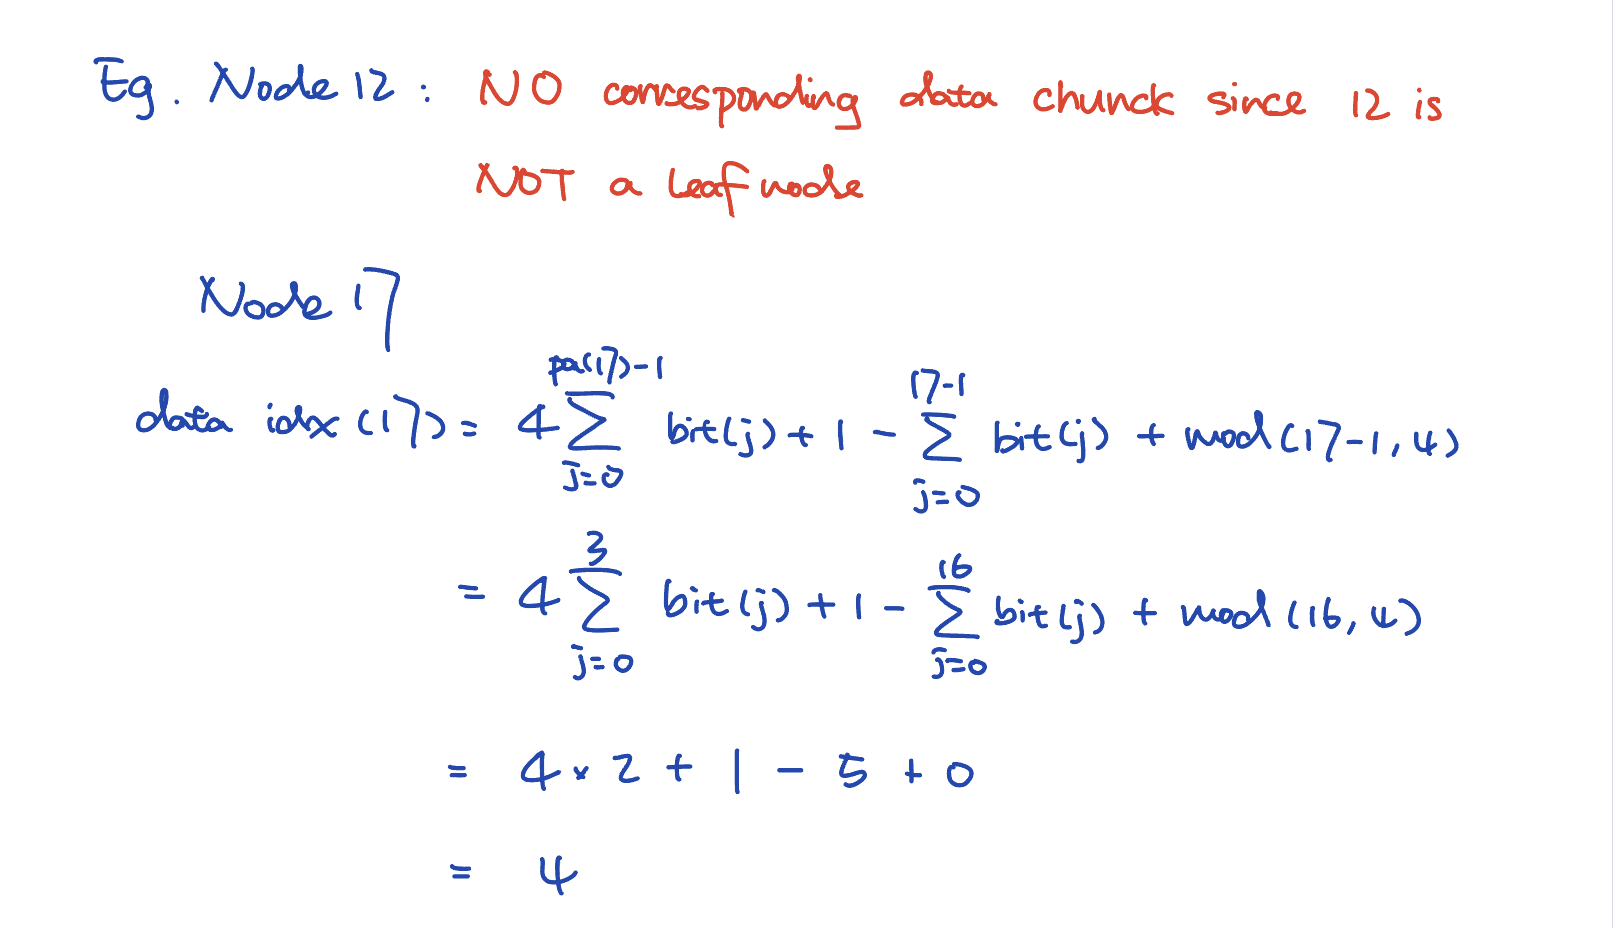 Eg. Node 12 : NO corresponding data chunck since 12 is
NOT a leaf node
Node 17
data idx (17) = 4 ∑_{j=0}^{pa(17)-1} bit(j) + 1 - ∑_{j=0}^{17-1} bit(j) + mod(17-1, 4)
= 4 ∑_{j=0}^{3} bit(j) + 1 - ∑_{j=0}^{16} bit(j) + mod(16, 4)
= 4 × 2 + 1 - 5 + 0
= 4